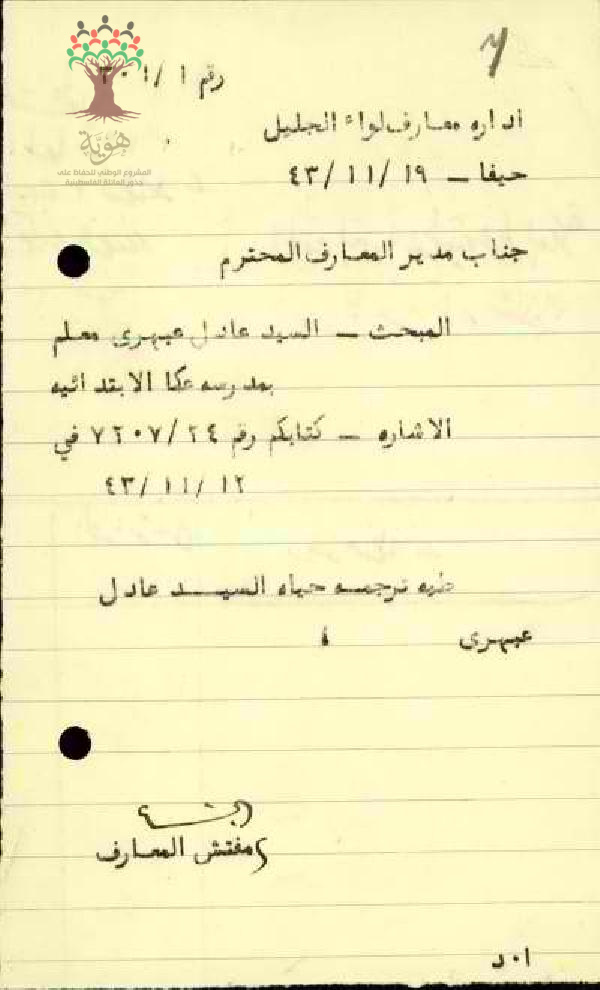 رقم ١/ ٣٠١
اداره معارف لواء الجليل
حيفا – ١٩ /١١ /٤٣
هُويَّة
المشروع الوطني للحفاظ على
جذور العائلة الفلسطينية
جناب مدير المعارف المحترم
المبحث – السيد عادل عيهرى معلم
بمدرسه عكا الابتدائيه
الاشاره – كتابكم رقم ٧٢٠٧/٢٤ في
١٢ /١١ /٤٣
طيه ترجمه حياه السيد عادل
عيهرى ،
مفتش المعارف
ا٠د